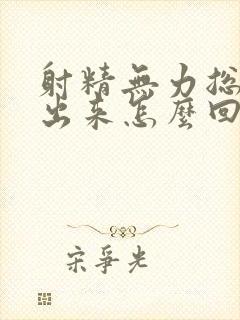 射精無力總
出来怎麼回
宋爭光